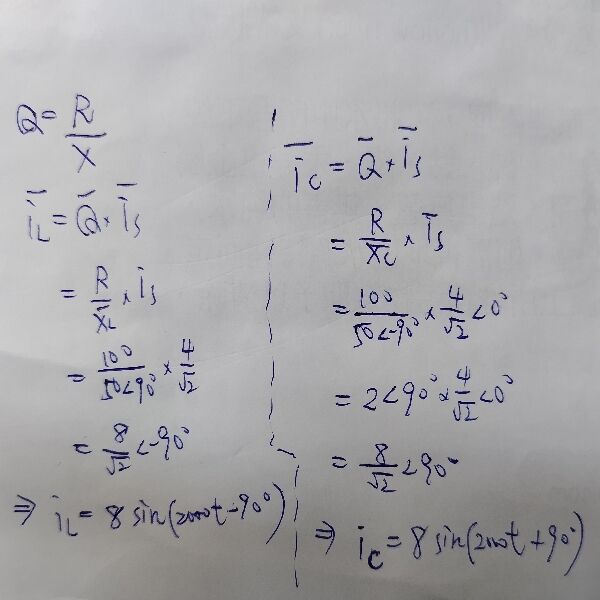 Q = R/X
i̅L = Q̅ × i̅s
= R/X̅L × i̅s
= 100/50<90° × 4/√2
= 8/√2 <-90°
⇒ iL = 8 sin(2000t-90°)
i̅c = Q̅ × i̅s
= R/X̅c × i̅s
= 100/50<-90° × 4/√2 <0°
= 2<90° × 4/√2 <0°
= 8/√2 <90°
⇒ ic = 8 sin(2000t+90°)